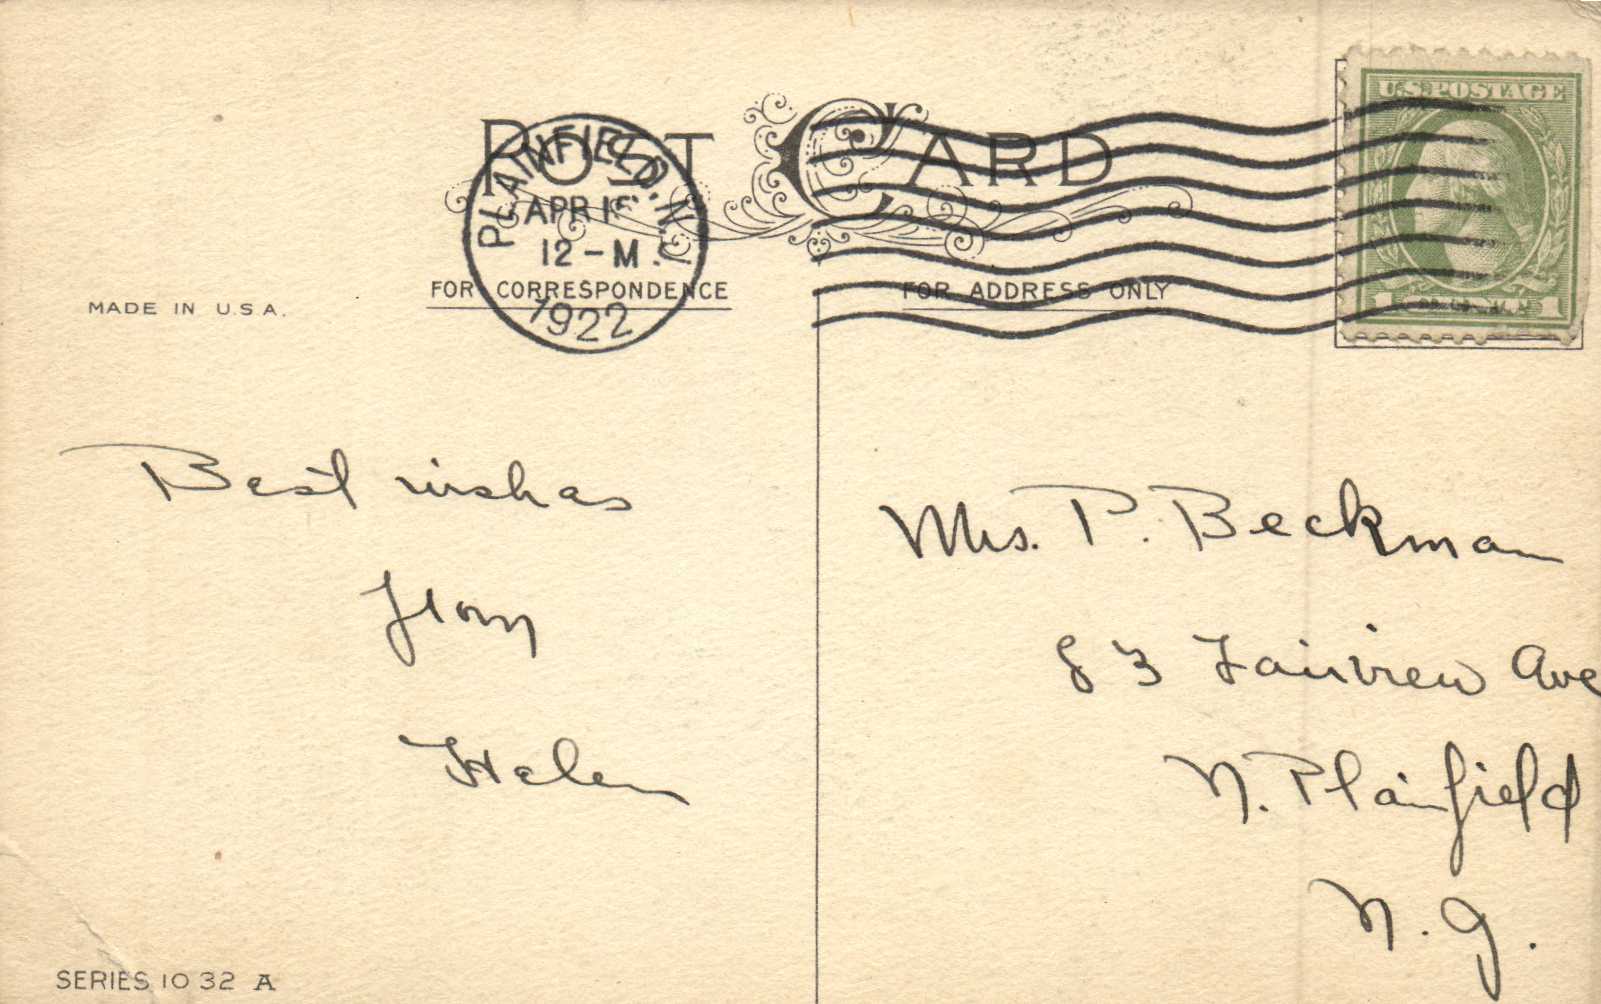 POST CARD
PLAINFIELD, N.J.
APR 15
12-M.
1922
U.S. POSTAGE
1 1
FOR CORRESPONDENCE
FOR ADDRESS ONLY
MADE IN U.S.A.
Best wishes
from
Helen
Mrs. P. Beckman
83 Fairview Ave
N. Plainfield
N. J.
SERIES 1032 A